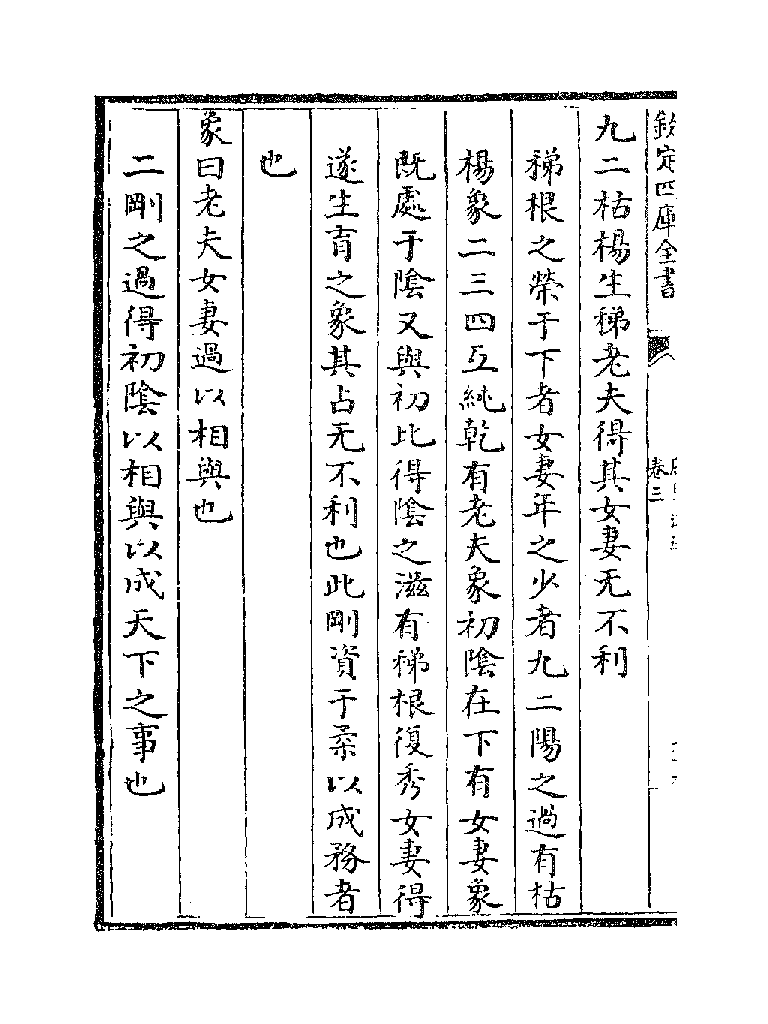 欽定四庫全書
卷三
九二枯楊生稊老夫得其女妻无不利
稊根之榮于下者女妻年之少者九二陽之過有枯
楊象二三四互純乾有老夫象初陰在下有女妻象
既處于陰又與初比得陰之滋有稊根復秀女妻得
遂生育之象其占无不利也此剛資于柔以成務者
也
象曰老夫女妻過以相與也
二剛之過得初陰以相與以成天下之事也